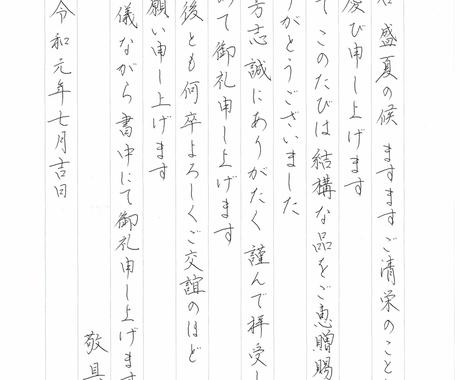 盛夏の候 ますますご清栄のこと
慶び申し上げます
て このたびは 結構な品をご恵贈賜
りがとうございました
芳志 誠にありがたく 謹んで拝受し
めて御礼申し上げます
後とも何卒よろしくご交誼のほど
願い申し上げます
儀ながら 書中にて御礼申し上げます
敬具
令和元年七月吉日